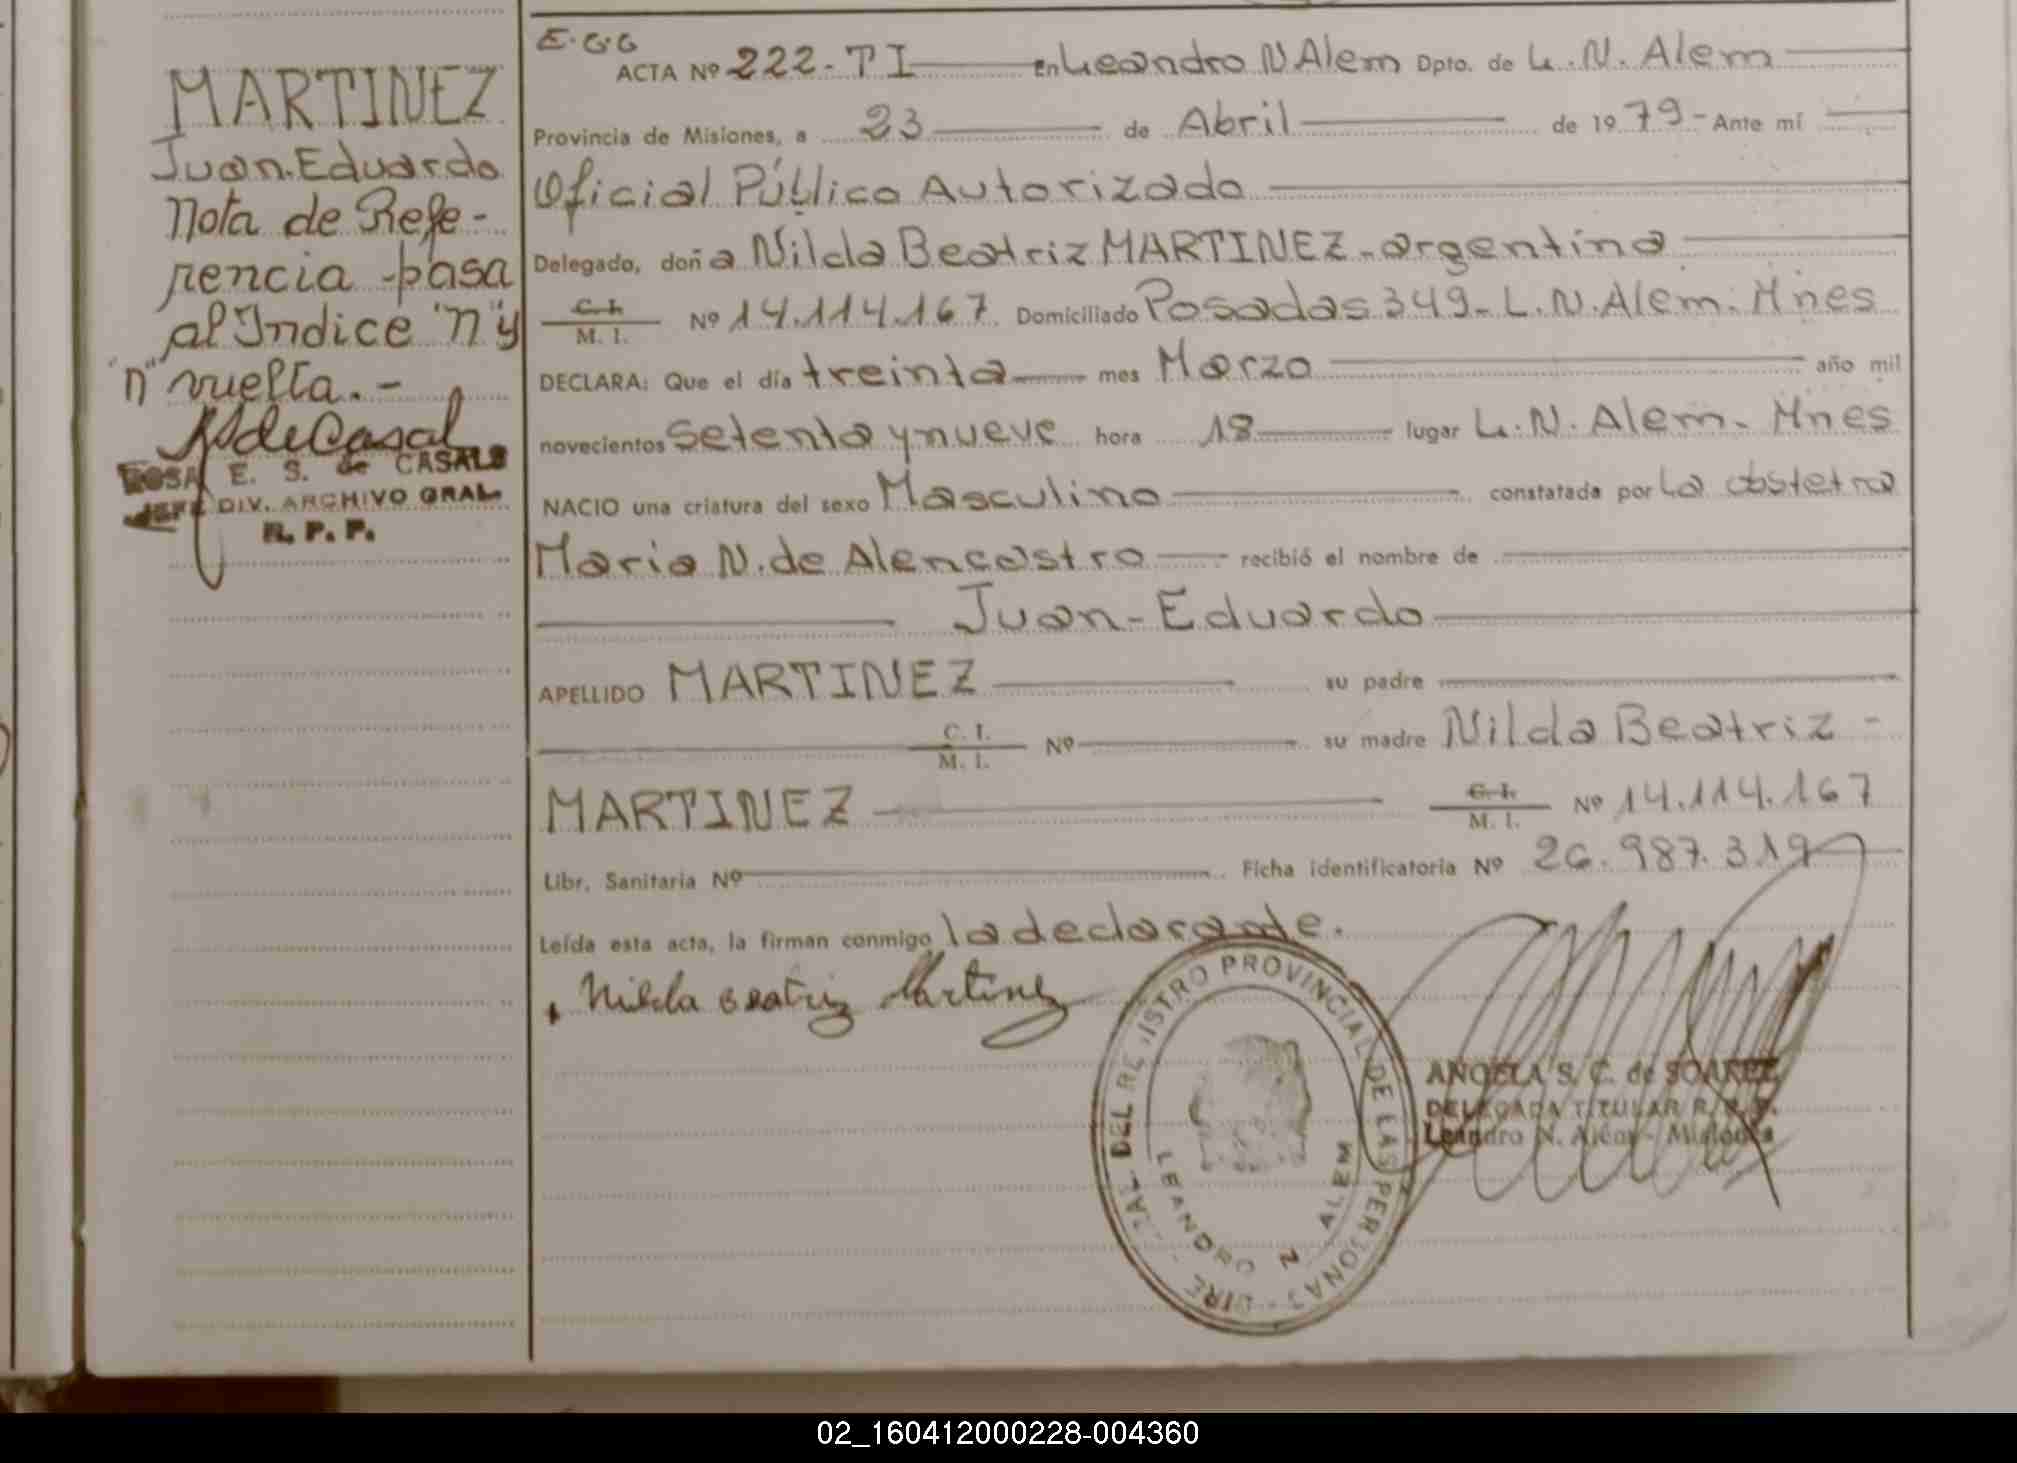 MARTINEZ
Juan.Eduardo
Nota de Refe-
rencia -pasa
al Indice "N" y
"N" vuelta.-
ROSA E. S. de CASALS
JEFE DIV. ARCHIVO GRAL.
R. P. P.
E.G.G
ACTA Nº 222-TI en Leandro N Alem Dpto. de L.N. Alem
Provincia de Misiones, a 23 de Abril de 1979- Ante mí
Oficial Público Autorizado
Delegado, doña Nilda Beatriz MARTINEZ-argentina
C. I. M. I. Nº 14.114.167 Domiciliado Posadas 349-L.N.Alem.Mnes
DECLARA: Que el día treinta mes Marzo año mil
novecientos setenta y nueve hora 18 lugar L.N.Alem-Mnes
NACIO una criatura del sexo Masculino constatada por La obstetra
Maria N. de Alencastro recibió el nombre de
Juan-Eduardo
APELLIDO MARTINEZ su padre
C. I. M. I. Nº su madre Nilda Beatriz-
MARTINEZ C. I. M. I. Nº 14.114.167
Libr. Sanitaria Nº Ficha identificatoria Nº 26.987.319
Leída esta acta, la firman conmigo la declarante.
Nilda Beatriz Martinez
DEL RE ISTRO PROVINCIAL DE LAS PERSONAS - DIRE
LEANDRO N ALEM
ANGELA S. C. de SOAREZ
DELEGADA TITULAR R. P. P.
Leandro N. Alem - Misiones
02_160412000228-004360